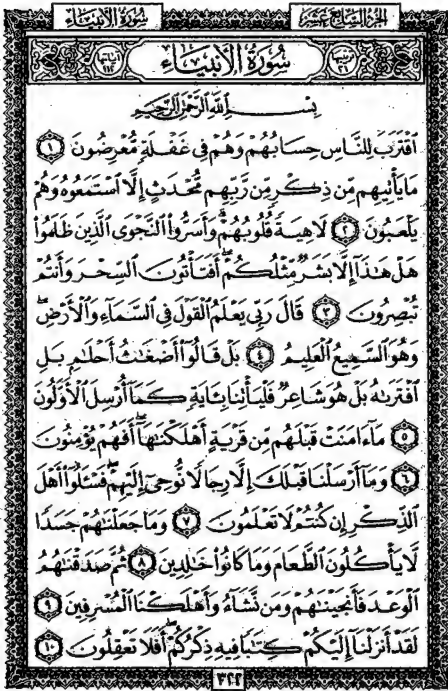 سُورَةُ الأَنْبِيَاءِ الجُزْءُ السَّابِعُ عَشَرَ
سُورَةُ الأَنْبِيَاءِ
بِسْمِ اللَّهِ الرَّحْمَٰنِ الرَّحِيمِ
ٱقْتَرَبَ لِلنَّاسِ حِسَابُهُمْ وَهُمْ فِى غَفْلَةٍ مُّعْرِضُونَ ١
مَا يَأْتِيهِم مِّن ذِكْرٍ مِّن رَّبِّهِم مُّحْدَثٍ إِلَّا ٱسْتَمَعُوهُ وَهُمْ
يَلْعَبُونَ ٢ لَاهِيَةً قُلُوبُهُمْ وَأَسَرُّوا۟ ٱلنَّجْوَى ٱلَّذِينَ ظَلَمُوا۟
هَلْ هَٰذَآ إِلَّا بَشَرٌ مِّثْلُكُمْ أَفَتَأْتُونَ ٱلسِّحْرَ وَأَنتُمْ
تُبْصِرُونَ ٣ قَالَ رَبِّى يَعْلَمُ ٱلْقَوْلَ فِى ٱلسَّمَآءِ وَٱلْأَرْضِ
وَهُوَ ٱلسَّمِيعُ ٱلْعَلِيمُ ٤ بَلْ قَالُوٓا۟ أَضْغَٰثُ أَحْلَٰمٍ بَلِ
ٱفْتَرَىٰهُ بَلْ هُوَ شَاعِرٌ فَلْيَأْتِنَا بِـَٔايَةٍ كَمَآ أُرْسِلَ ٱلْأَوَّلُونَ
٥ مَآ ءَامَنَتْ قَبْلَهُم مِّن قَرْيَةٍ أَهْلَكْنَٰهَآ أَفَهُمْ يُؤْمِنُونَ
٦ وَمَآ أَرْسَلْنَا قَبْلَكَ إِلَّا رِجَالًا نُّوحِىٓ إِلَيْهِمْ فَسْـَٔلُوٓا۟ أَهْلَ
ٱلذِّكْرِ إِن كُنتُمْ لَا تَعْلَمُونَ ٧ وَمَا جَعَلْنَٰهُمْ جَسَدًا
لَّا يَأْكُلُونَ ٱلطَّعَامَ وَمَا كَانُوا۟ خَٰلِدِينَ ٨ ثُمَّ صَدَقْنَٰهُمُ
ٱلْوَعْدَ فَأَنجَيْنَٰهُمْ وَمَن نَّشَآءُ وَأَهْلَكْنَا ٱلْمُسْرِفِينَ ٩
لَقَدْ أَنزَلْنَآ إِلَيْكُمْ كِتَٰبًا فِيهِ ذِكْرُكُمْ أَفَلَا تَعْقِلُونَ ١٠
٣٢٢